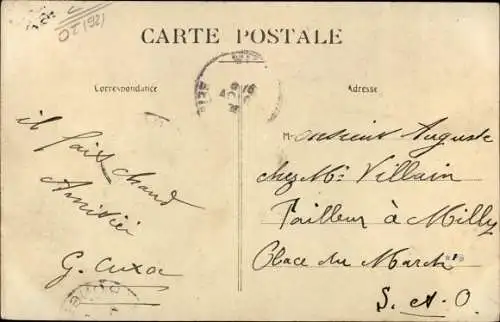 OZ1921
CARTE POSTALE
Correspondance
Adresse
il fait chaud
Amitiés
G. Cuxac
Monsieur Auguste
chez Mr Villain
Tailleur à Milly
Place du Marché
S. & O.